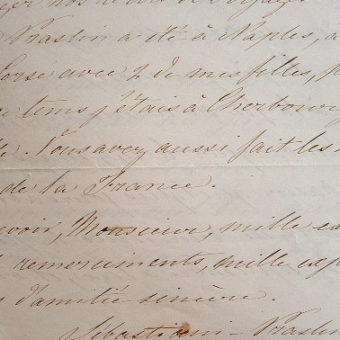 nos
Praslin a été à Naples, a
Corse avec 2 de mes filles, p
e tems j'étais à Cherbourg
de. Vous avez aussi fait les
de la France.
evoir, Monsieur, mille ex
& remerciments, mille exp
s d'amitié sincère.
Sébastiani-Praslin